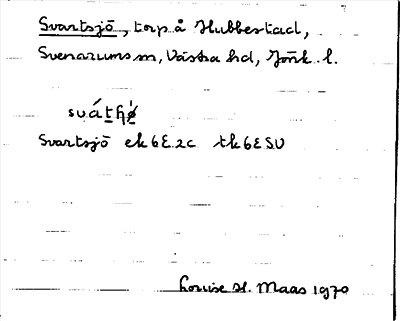 Svartsjö, torp å Hubbestad,
Svenarums sn, Västra hd, Jönk. l.
Svartsjö ek 6E2c tk 6E SV
Louise H. Maas 1970